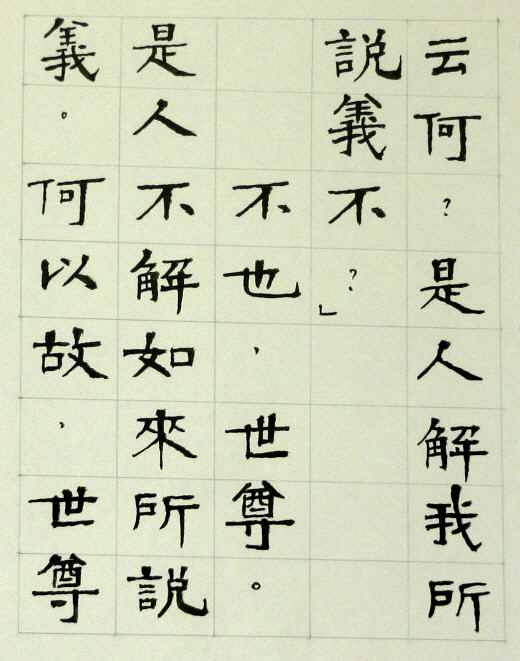 云何？是人解我所
說義不？」
不也，世尊。
是人不解如來所說
義。何以故，世尊